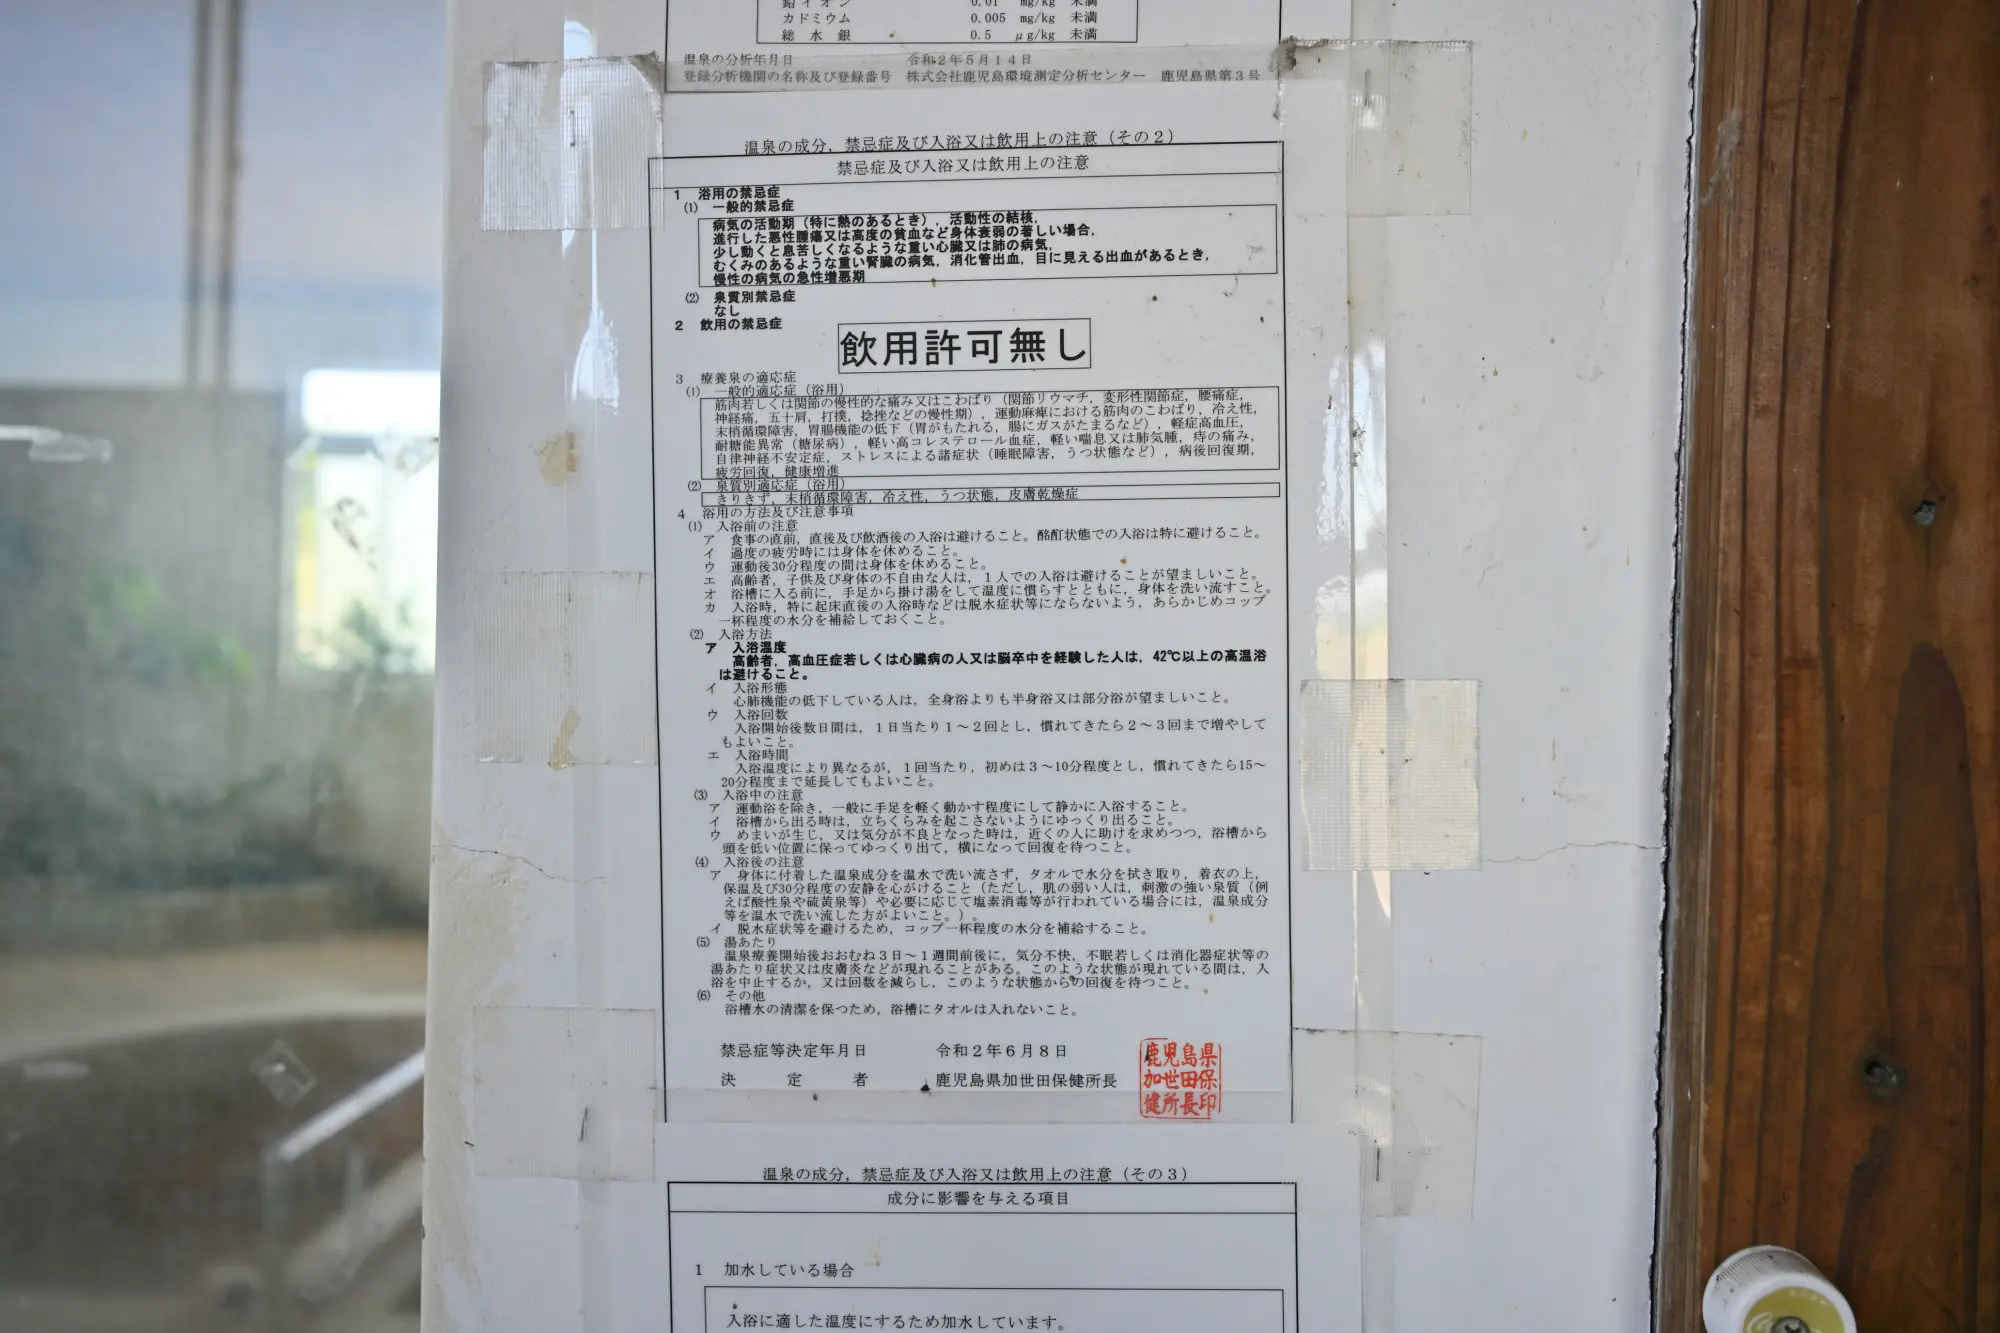 鉛イオン 0.01 mg/kg 未満
カドミウム 0.005 mg/kg 未満
総水銀 0.5 μg/kg 未満
温泉の分析年月日 令和2年5月14日
登録分析機関の名称及び登録番号 株式会社鹿児島環境測定分析センター 鹿児島県第3号
温泉の成分，禁忌症及び入浴又は飲用上の注意（その2）
禁忌症及び入浴又は飲用上の注意
1 浴用の禁忌症
(1) 一般的禁忌症
病気の活動期（特に熱のあるとき），活動性の結核，
進行した悪性腫瘍又は高度の貧血など身体衰弱の著しい場合，
少し動くと息苦しくなるような重い心臓又は肺の病気，
むくみのあるような重い腎臓の病気，消化管出血，目に見える出血があるとき，
慢性の病気の急性増悪期
(2) 泉質別禁忌症
なし
2 飲用の禁忌症
飲用許可無し
3 療養泉の適応症
(1) 一般的適応症（浴用）
筋肉若しくは関節の慢性的な痛み又はこわばり（関節リウマチ，変形性関節症，腰痛症，
神経痛，五十肩，打撲，捻挫などの慢性期），運動麻痺における筋肉のこわばり，冷え性，
末梢循環障害，胃腸機能の低下（胃がもたれる，腸にガスがたまるなど），軽症高血圧，
耐糖能異常（糖尿病），軽い高コレステロール血症，軽い喘息又は肺気腫，痔の痛み，
自律神経不安定症，ストレスによる諸症状（睡眠障害，うつ状態など），病後回復期，
疲労回復，健康増進
(2) 泉質別適応症（浴用）
きりきず，末梢循環障害，冷え性，うつ状態，皮膚乾燥症
4 浴用の方法及び注意事項
(1) 入浴前の注意
ア 食事の直前，直後及び飲酒後の入浴は避けること。酩酊状態での入浴は特に避けること。
イ 過度の疲労時には身体を休めること。
ウ 運動後30分程度の間は身体を休めること。
エ 高齢者，子供及び身体の不自由な人は，1人での入浴は避けることが望ましいこと。
オ 浴槽に入る前に，手足から掛け湯をして温度に慣らすとともに，身体を洗い流すこと。
カ 入浴時，特に起床直後の入浴時などは脱水症状等にならないよう，あらかじめコップ
一杯程度の水分を補給しておくこと。
(2) 入浴方法
ア 入浴温度
高齢者，高血圧症若しくは心臓病の人又は脳卒中を経験した人は，42℃以上の高温浴
は避けること。
イ 入浴形態
心肺機能の低下している人は，全身浴よりも半身浴又は部分浴が望ましいこと。
ウ 入浴回数
入浴開始後数日間は，1日当たり1～2回とし，慣れてきたら2～3回まで増やして
もよいこと。
エ 入浴時間
入浴温度により異なるが，1回当たり，初めは3～10分程度とし，慣れてきたら15～
20分程度まで延長してもよいこと。
(3) 入浴中の注意
ア 運動浴を除き，一般に手足を軽く動かす程度にして静かに入浴すること。
イ 浴槽から出る時は，立ちくらみを起こさないようにゆっくり出ること。
ウ めまいが生じ，又は気分が不良となった時は，近くの人に助けを求めつつ，浴槽から
頭を低い位置に保ってゆっくり出て，横になって回復を待つこと。
(4) 入浴後の注意
ア 身体に付着した温泉成分を温水で洗い流さず，タオルで水分を拭き取り，着衣の上，
保温及び30分程度の安静を心がけること（ただし，肌の弱い人は，刺激の強い泉質（例
えば酸性泉や硫黄泉等）や必要に応じて塩素消毒等が行われている場合には，温泉成分
等を温水で洗い流した方がよいこと。）。
イ 脱水症状等を避けるため，コップ一杯程度の水分を補給すること。
(5) 湯あたり
温泉療養開始後おおむね3日～1週間前後に，気分不快，不眠若しくは消化器症状等の
湯あたり症状又は皮膚炎などが現れることがある。このような状態が現れている間は，入
浴を中止するか，又は回数を減らし，このような状態からの回復を待つこと。
(6) その他
浴槽水の清潔を保つため，浴槽にタオルは入れないこと。
禁忌症等決定年月日 令和2年6月8日
決定者 鹿児島県加世田保健所長
鹿児島県
加世田保
健所長印
温泉の成分，禁忌症及び入浴又は飲用上の注意（その3）
成分に影響を与える項目
1 加水している場合
入浴に適した温度にするため加水しています。